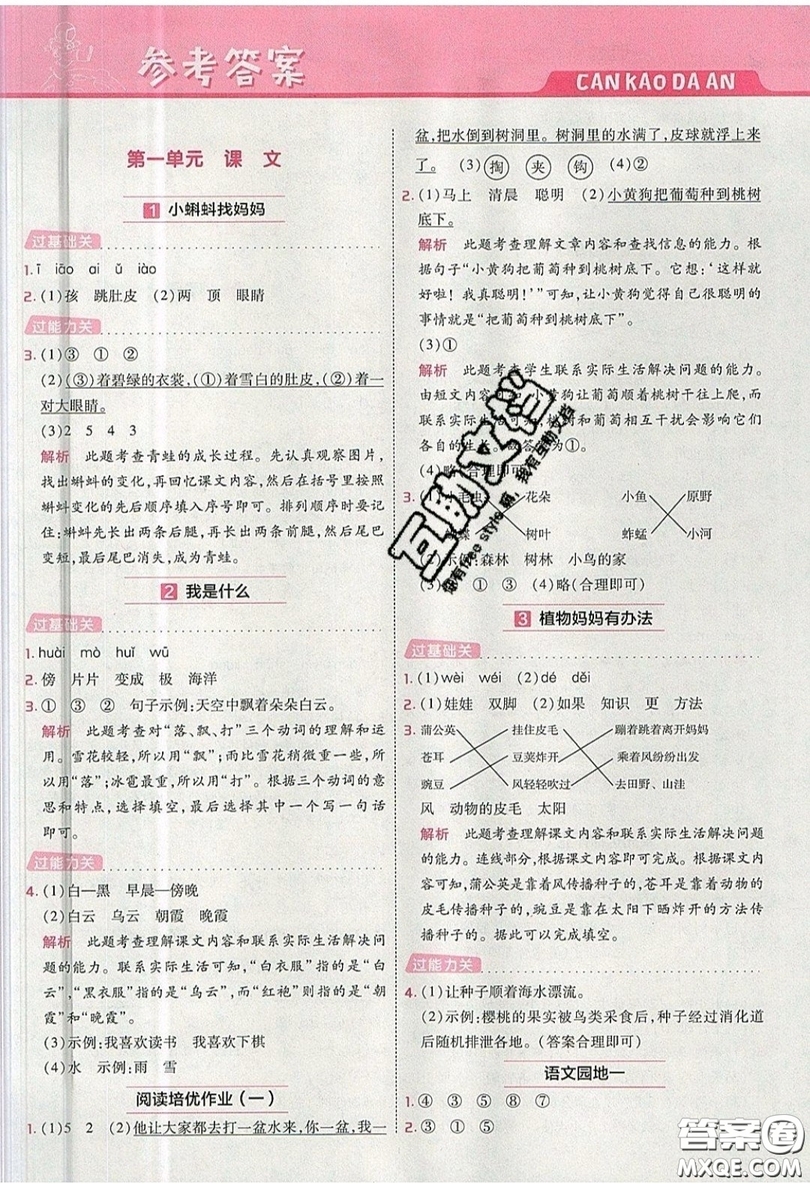 参考答案
CAN KAO DA AN
第一单元 课 文
1 小蝌蚪找妈妈
过基础关
1. ī iāo ai ǔ iào
2. (1)孩 跳肚皮 (2)两 顶 眼睛
过能力关
3. (1)③ ① ②
(2)(③)着碧绿的衣裳,(①)着雪白的肚皮,(②)着一
对大眼睛。
(3)2 5 4 3
解析 此题考查青蛙的成长过程。先认真观察图片,
找出蝌蚪的变化,再回忆课文内容,然后在括号里按照
蝌蚪变化的先后顺序填入序号即可。排列顺序时要记
住:蝌蚪先长出两条后腿,再长出两条前腿,然后尾巴
变短,最后尾巴消失,成为青蛙。
2 我是什么
过基础关
1. huài mò huǐ wū
2. 傍 片片 变成 极 海洋
3. ① ③ ② 句子示例:天空中飘着朵朵白云。
解析 此题考查对“落、飘、打”三个动词的理解和运
用。雪花较轻,所以用“飘”;而比雪花稍微重一些,所
以用“落”;冰雹最重,所以用“打”。根据三个动词的意
思和特点,选择填空,最后选择其中一个写一句话
即可。
过能力关
4. (1)白—黑 早晨—傍晚
(2)白云 乌云 朝霞 晚霞
解析 此题考查理解课文内容和联系实际生活解决问
题的能力。联系实际生活可知,“白衣服”指的是“白
云”,“黑衣服”指的是“乌云”,而“红袍”则指的是“朝
霞”和“晚霞”。
(3)示例:我喜欢读书 我喜欢下棋
(4)水 示例:雨 雪
阅读培优作业(一)
1. (1)5 2 (2)他让大家都去打一盆水来,你一盆,我一
盆,把水倒到树洞里。树洞里的水满了,皮球就浮上来
了。 (3)掏 夹 钩 (4)②
2. (1)马上 清晨 聪明 (2)小黄狗把葡萄种到桃树
底下。
解析 此题考查理解文章内容和查找信息的能力。根
据句子“小黄狗把葡萄种到桃树底下。它想:‘这样就
好啦!我真聪明!’”可知,让小黄狗觉得自己很聪明的
事情就是“把葡萄种到桃树底下”。
(3)①
解析 此题考查学生联系实际生活解决问题的能力。
由短文内容可知,小黄狗让葡萄顺着桃树干往上爬,而
联系实际生活可知,桃树和葡萄相互干扰会影响它们
各自的生长。故答案为①。
(4)略(合理即可)
3. (1)小毛虫 花朵 小鱼 原野
蝶 树叶 蚱蜢 小河
(2)示例:森林 树林 小鸟的家
(3)② ① ③ (4)略(合理即可)
3 植物妈妈有办法
过基础关
1. (1)wèi wéi (2)dé děi
2. (1)娃娃 双脚 (2)如果 知识 更 方法
3. 蒲公英 挂住皮毛 蹦着跳着离开妈妈
苍耳 豆荚炸开 乘着风纷纷出发
豌豆 风轻轻吹过 去田野、山洼
风 动物的皮毛 太阳
解析 此题考查理解课文内容和联系实际生活解决问题
的能力。连线部分,根据课文内容即可完成。根据课文
内容可知,蒲公英是靠着风传播种子的,苍耳是靠着动物的
皮毛传播种子的,豌豆是靠在太阳下晒炸开的方法传
播种子的。据此可以完成填空。
过能力关
4. (1)让种子顺着海水漂流。
(2)示例:樱桃的果实被鸟类采食后,种子经过消化道
后随机排泄各地。(答案合理即可)
语文园地一
1. ④ ③ ⑤ ⑧ ⑦
2. ③ ① ⑤
互助文档
您有free style嘛,我有互助文档
答案圈
MXQE.COM